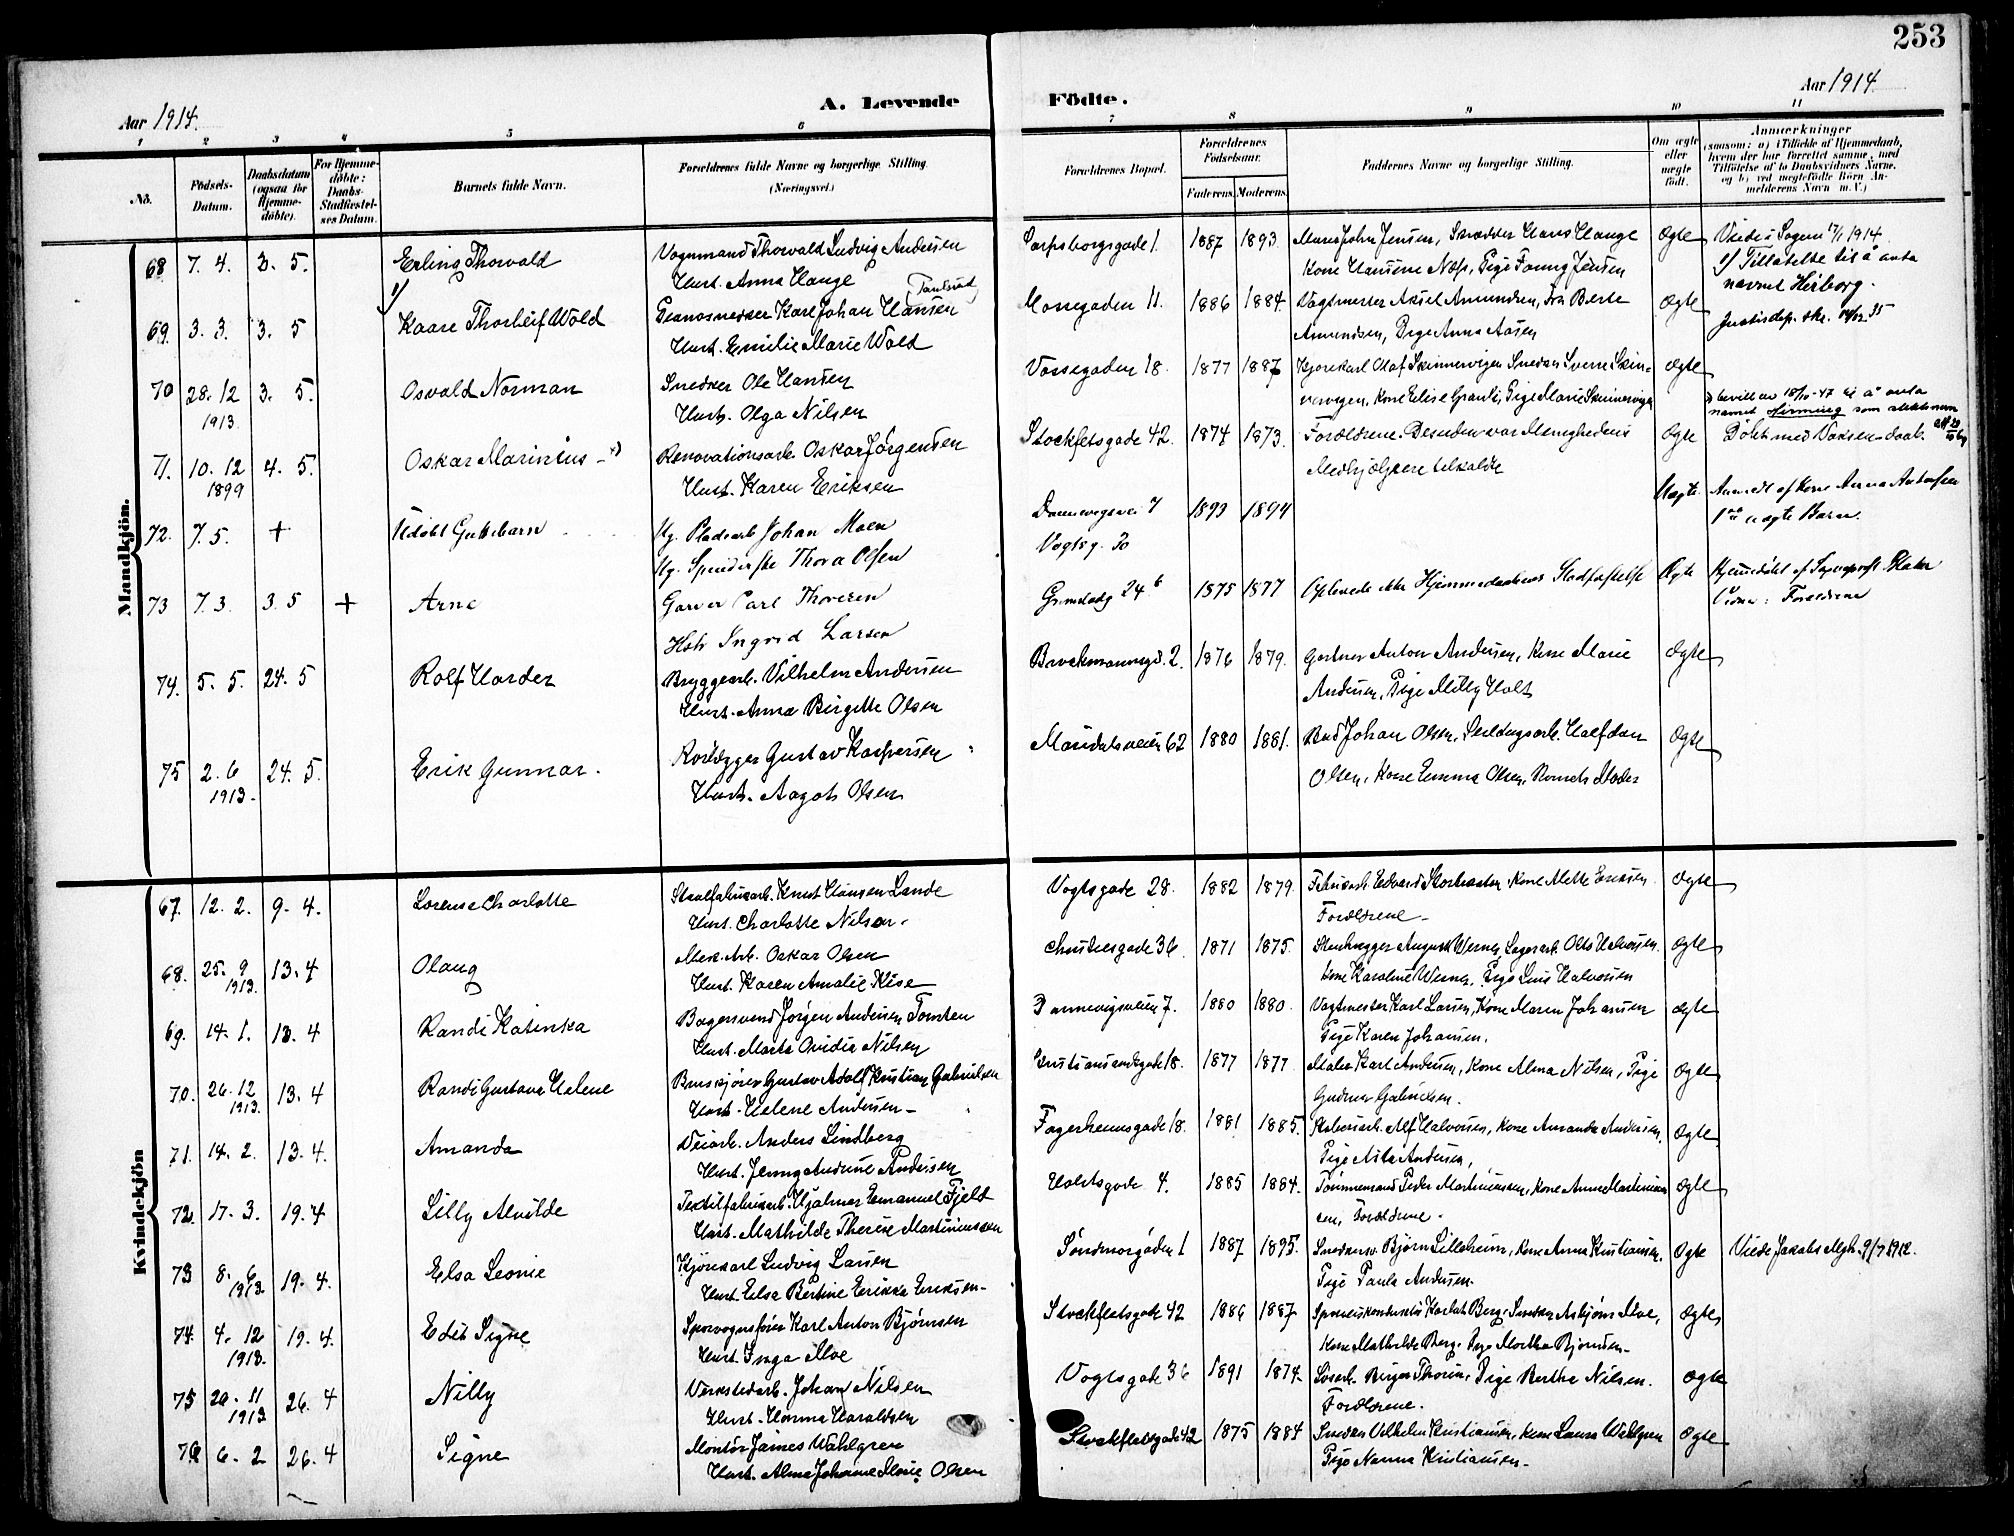 253
Aar 1914.
A. Levende
Födte.
Aar 1914
1 2 3 4 5 6 7 8 9 10 11
No.
Födsels-Datum.
Daabsdatum (ogsaa for Hjemme-döbte).
For Hjemme-döbte: Daabs-Stadfæstel-ses Datum.
Barnets fulde Navn.
Forældrenes fulde Navne og borgerlige Stilling. (Næringsvei.)
Forældrenes Bopæl.
Forældrenes Födselsaar.
Faderens. Moderens.
Faddernes Navne og borgerlige Stilling.
Om ægte eller uægte födt.
Anmærkninger
(saasom: a) i Tilfælde af Hjemmedaab, hvem der har forrettet samme, med Tilföielse af to Daabsvidners Navne, og b) ved uægtefödte Börn An-melderens Navn m. V.)
Mandkjön.
68 7. 4. 3. 5. Erling Thorvald Vognmand Thorvald Ludvig Andersen Sarpsborgsgade 1. 1887 1893. Maurer John Jensen, Snedker Hans Hauge Ægte Viede i Sagene 17/1 1914
Hust. Anna Hauge Kone Hansine Næss, Pige Fanny Jensen 1) Tillatelse til å anta
navnet Herborg.
Justisdep. skr. 35
69. 3. 3. 3. 5 1) Kaare Thorleif Wold Pianosnedker Karl Johan Hansen Mossegaden 11. 1886 1884. Vagtmester Aksel Amundsen, Fru Berte Ægte
Hust. Emilie Marie Wold Amundsen, Pige Anna Aasen
70 28. 12 1913. 3. 5. Osvald Norman Snedker Ole Hansen Vossegaden 18. 1877 1887 Kjørekarl Olaf Skinnervigen Snedker Sverre Skin- Ægte
Hust. Olga Nilsen nervigen, Kone Elise Granli, Pige Marie Skinnervigen
71. 10. 12 1899 4. 5. Oskar Marinius -x) Renovationsarb. Oskar Jørgensen Stockfletsgade 42. 1874 1873. Forældrene. Desuden var Menighedens Ægte x) bevill av 18/10-47 til å anta
navnet Firming som slektsnavn
Døbt med Voksen-daab.
Hust. Karen Eriksen Medhjælpere tilkaldte
72. 7. 5. + Udøbt Guttebarn Ug. Pladearb Johan Moen Dannevigsvei 7 1893 1894 Uægte. Anmeldt af Kone Anna Antonsen
Ug. Spinderske Thora Olsen Vogtsg. 30 1ste uægte Barn.
73 7. 3. 3. 5 + Arne Garver Carl Thoresen Grimstadg 24 b 1875 1877 Oplevede ikke Hjemmedaabens Stadfæstelse Ægte Hjemmedøbt af Sognepræst Platou
Hstr Ingrid Larsen Vidne: Forældrene
74. 5. 5. 24. 5 Rolf Harder Bryggearb. Vilhelm Andersen Brockmannsgd. 2. 1876 1879. Gartner Anton Andersen, Kone Marie Ægte
Hust. Anna Birgitte Olsen Andersen, Pige Milly Holt
75 2. 6 1913. 24. 5. Erik Gunnar. Rørlægger Gustav Kaspersen Maridalsveien 62 1880 1881. Bud Johan Olsen, Halfdan Ægte
Hust. Aagot Olsen Olsen, Kone Emma Olsen, Barnets Moder
Kvindekjön
67. 12. 2. 9. 4. Lorense Charlotte Staalfabrikarb. Knut Hansen Lande Vogtsgade 28. 1882 1879. Fabrikarb. Edvard Storhaator, Kone Mette Eriksen. Ægte
Hust. Charlotte Nilsen. Forældrene.
68. 25. 9 1913. 13. 4 Olaug Mek. Arb. Oskar Olsen Christiesgade 36. 1871 1875. Stenhugger August Werner, Lagerarb. Otto Halvorsen. Ægte
Hust. Karen Amalie Kise Kone Karoline Werner, Pige Halvorsen
69. 14. 1. 13. 4 Randi Katinka Bagersvend Jørgen Andersen Tomten Dannevigsveien 7. 1880 1880. Vagtmester Karl Larsen, Kone Maren Johansen Ægte
Hust. Marta Ovidia Nilsen Pige Karen Johansen.
70. 26. 12 1913. 13. 4 Randi Gustava Helene Bruskjører Gustav Adolf Kristian Gabrielsen Kristiansandsgade 18. 1877 1877 Maler Karl Andersen, Kone Alma Nilsen, Pige Ægte
Hust. Helene Andersen Gudrun Gabrielsen.
71. 14. 2. 13. 4. Amanda Veiarb. Anders Lindberg Fagerheimsgade 18. 1881 1885. Alf Halvorsen, Kone Amanda Andersen, Ægte
Hust. Jenny Andrine Andersen Pige Asta Andersen,
72. 17. 3. 19. 4 Lilly Alvilde Textilfabrikarb. Hjalmar Emanuel Fjeld Holstsgade 4. 1885 1884. Tømmermand Peder Martinussen, Kone Anne Martinus- Ægte
Hust. Mathilde Therese Martinussen sen, Forældrene.
73 8. 6 1913 19. 4. Elsa Leonie Kjørekarl Ludvig Larsen Søndmørgaden 1 1887 1895. Snedkersv. Bjørn Lilleheim, Kone Anna Kristiansen. Ægte Viede Jakobs Mgh. 9/7 1912.
Hust. Elsa Bertine Erikka Eriksen Pige Paula Andersen.
74. 4. 12 1913. 19. 4. Edit Signe Sporvognsfører Karl Anton Bjørnsen Stockfletsgade 42 1886 1887 Sporveiskonduktør Berg, Snedker Asbjørn Moe, Ægte
Hust. Inga Moe Kone Mathilde Berg. Pige Martha Bjørnsen.
75 20. 11 1913 26. 4 Nilly Verkstedarb. Johan Nilsen Vogtsgade 36 1891 1874. Løsarb. Birger Thorin, Pige Berthe Nilsen. Ægte
Hust. Hanna Haraldsen Forældrene.
76 6. 2 26. 4 Signe Montør James Wahlgren Stockfletsgade 42 1875 1884 Snedker Vilhelm Kristiansen, Kone Laura Wahlgren Ægte
Hust. Alma Johanne Marie Olsen Pige Nanna Kristiansen.